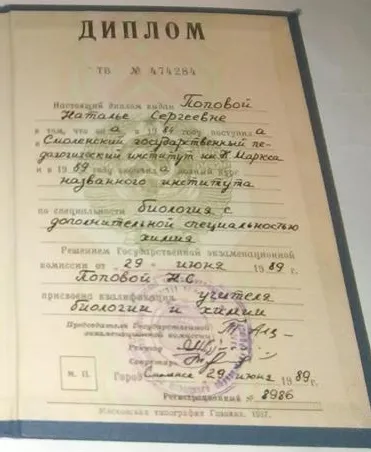 ДИПЛОМ
ТВ № 474284
Настоящий диплом выдан Поповой
Наталье Сергеевне
в том, что она в 1984 году поступила
в Смоленский государственный пе-
дагогический институт им К Маркса
и в 1989 году окончила полный курс
названного института
по специальности биология с
дополнительной специальностью
химия
Решением Государственной экзаменационной
комиссии от 29 июня 1989 г.
Поповой Н.С.
присвоена квалификация учителя
биологии и химии
Председатель Государственной
экзаменационной комиссии
Ректор
Секретарь
М. П. Город Смоленск 29 июня 1989 г.
Регистрационный № 8986
Московская типография Гознака. 1987.